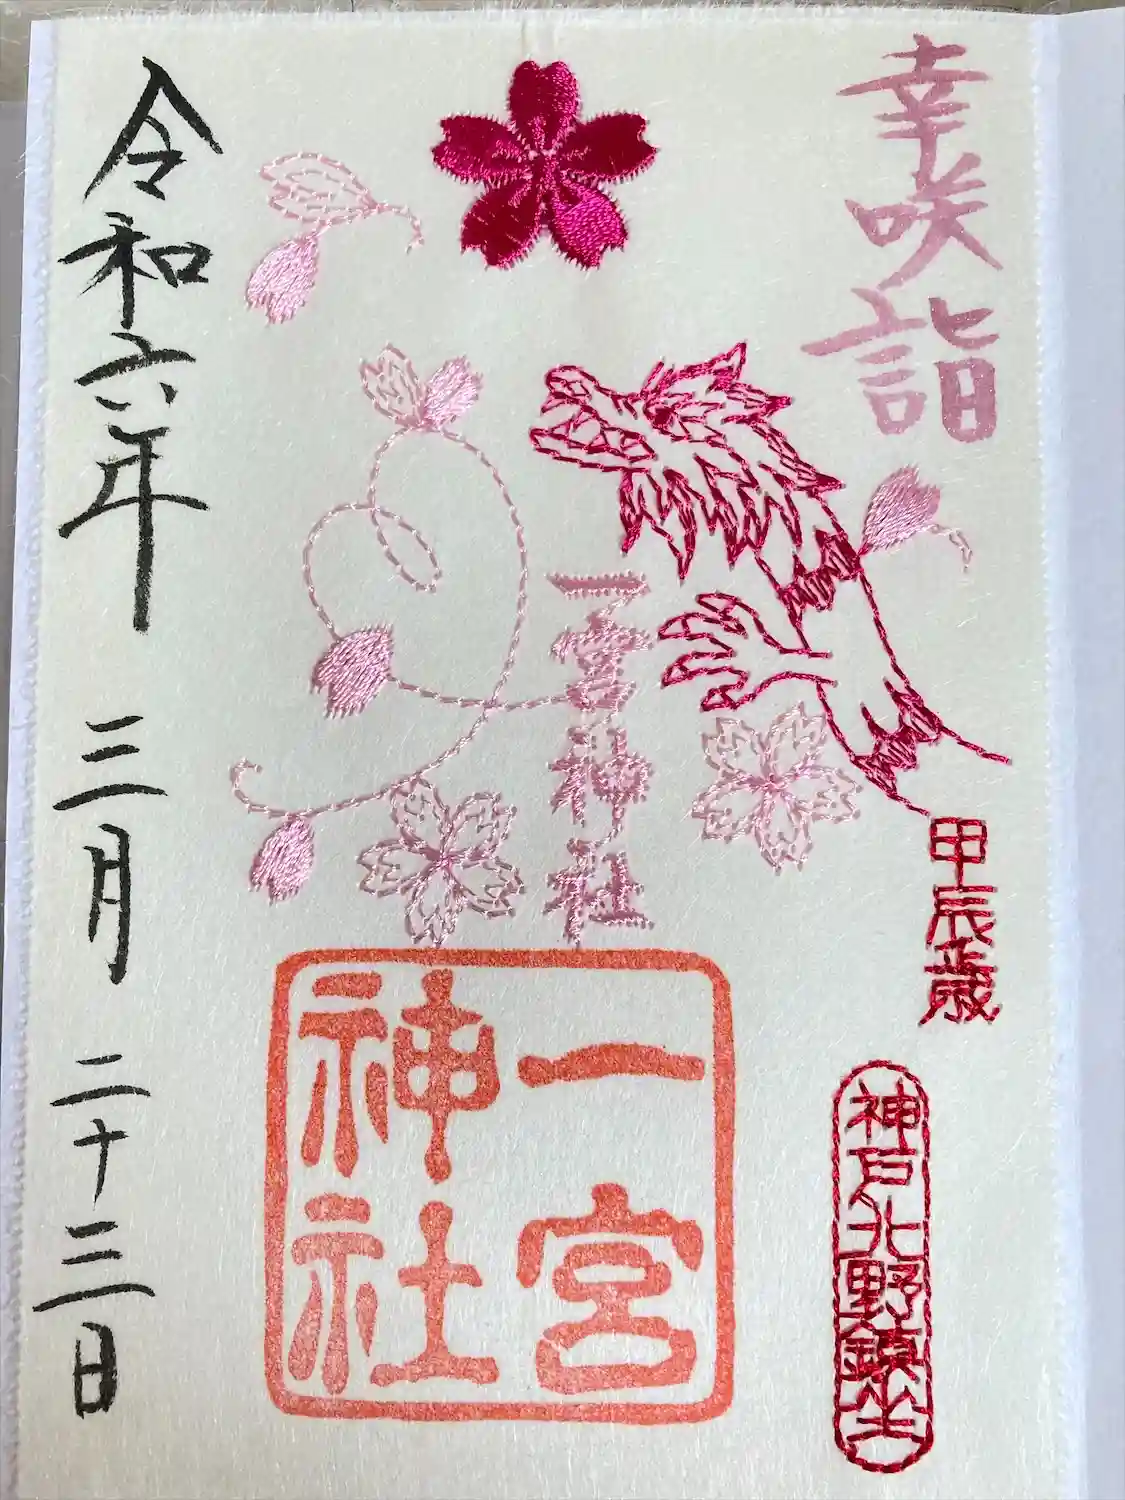 幸咲詣
甲辰歳
神戸北野鎮坐
一宮神社
一宮
神社
令和六年 三月 二十三日